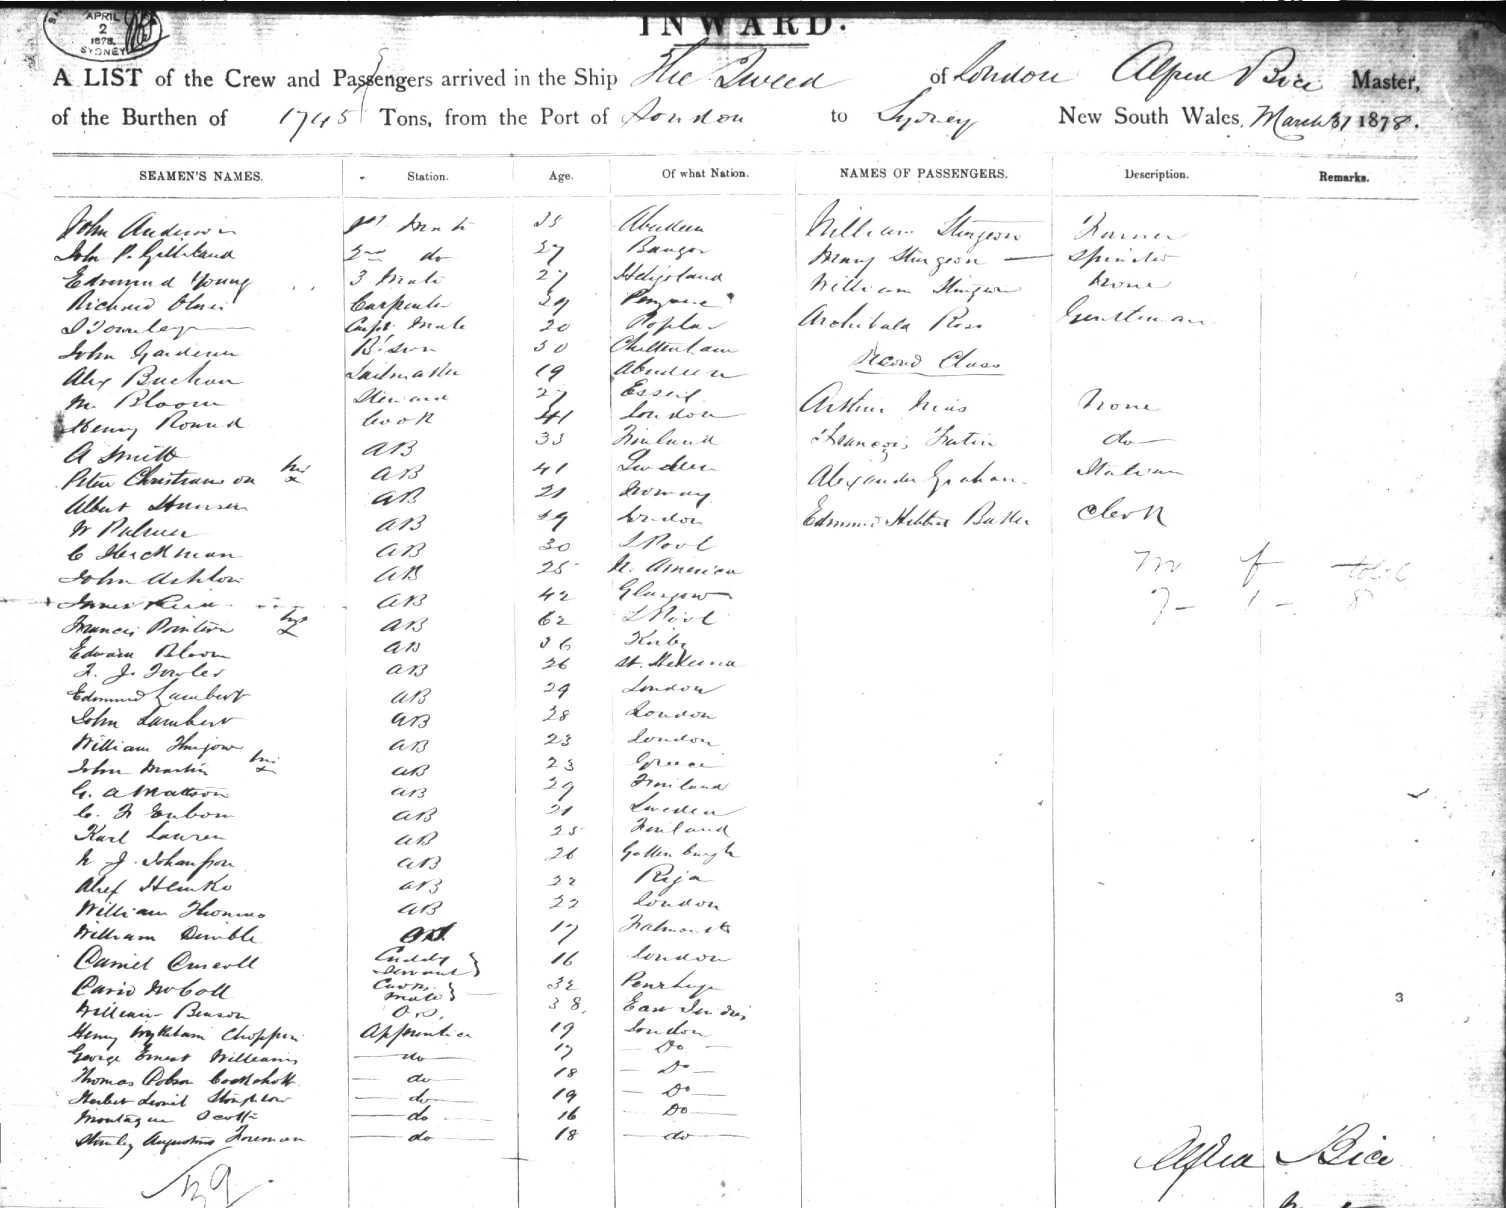 APRIL
2
1878
SYDNEY
INWARD.
A LIST of the Crew and Passengers arrived in the Ship The Tweed of London Alfred Bice Master,
of the Burthen of 1745 Tons, from the Port of London to Sydney New South Wales, March 31 1878.
SEAMEN'S NAMES. Station. Age. Of what Nation. NAMES OF PASSENGERS. Description. Remarks.
John Anderson 1st Mate 35 Aberdeen William Sturgeon Farmer
John P. Gilliland 2nd do 27 Bangor Mary Sturgeon Spinster
Edmund Young 3 Mate 27 Heligoland William Sturgeon None
Richard Carpenter 29 Penzance Archibald Ross Gentleman
Townley Carps Mate 20 Poplar
John Gardener B'swn 30 Cheltenham Second Class
Alex Buchan Sailmaker 19 Aberdeen
M. Bloom Steward 27 Essex Arthur None
Henry Round Cook 41 London
A Smith AB 33 Finland François do
Peter Christianson his x AB 41 Sweden Alexander Graham Italian
Albert Hansen AB 21 Norway
W Palmer AB 19 London Edmund Butler Clerk
C Herckman AB 30 L Pool
John Ashton AB 25 N. American M f total
James AB 42 Glasgow 7 - 1 - 8
Francis his x AB 62 L Pool
Edward Bloom AB 36 Kirby
F. J. Fowler AB 26 St. Helena
Edmund Lambert AB 29 London
John Lambert AB 28 London
William AB 23 London
John Martin his x AB 23 Greece
G. A Mattson AB 29 Finland
C. F AB 21 Sweden
Karl AB 25 Finland
N J. Johansson AB 26 Gottenburgh
Alex AB 22 Riga
William Thomas AB 22 London
William Dimble OS 17 Falmouth
Daniel Driscoll Cuddy Servant 16 London
David McColl Cooks Mate 32
William Benson O.S. 38 East Indies
Henry Wykeham Choppin Apprentice 19 London
George Ernest Williams do 17 Do
Thomas Dobson do 18 Do
Herbert Lionel do 19 Do
Montague Scott do 16 Do
Stanley Augustus Foreman do 18 do
3
39
Alfred Bice